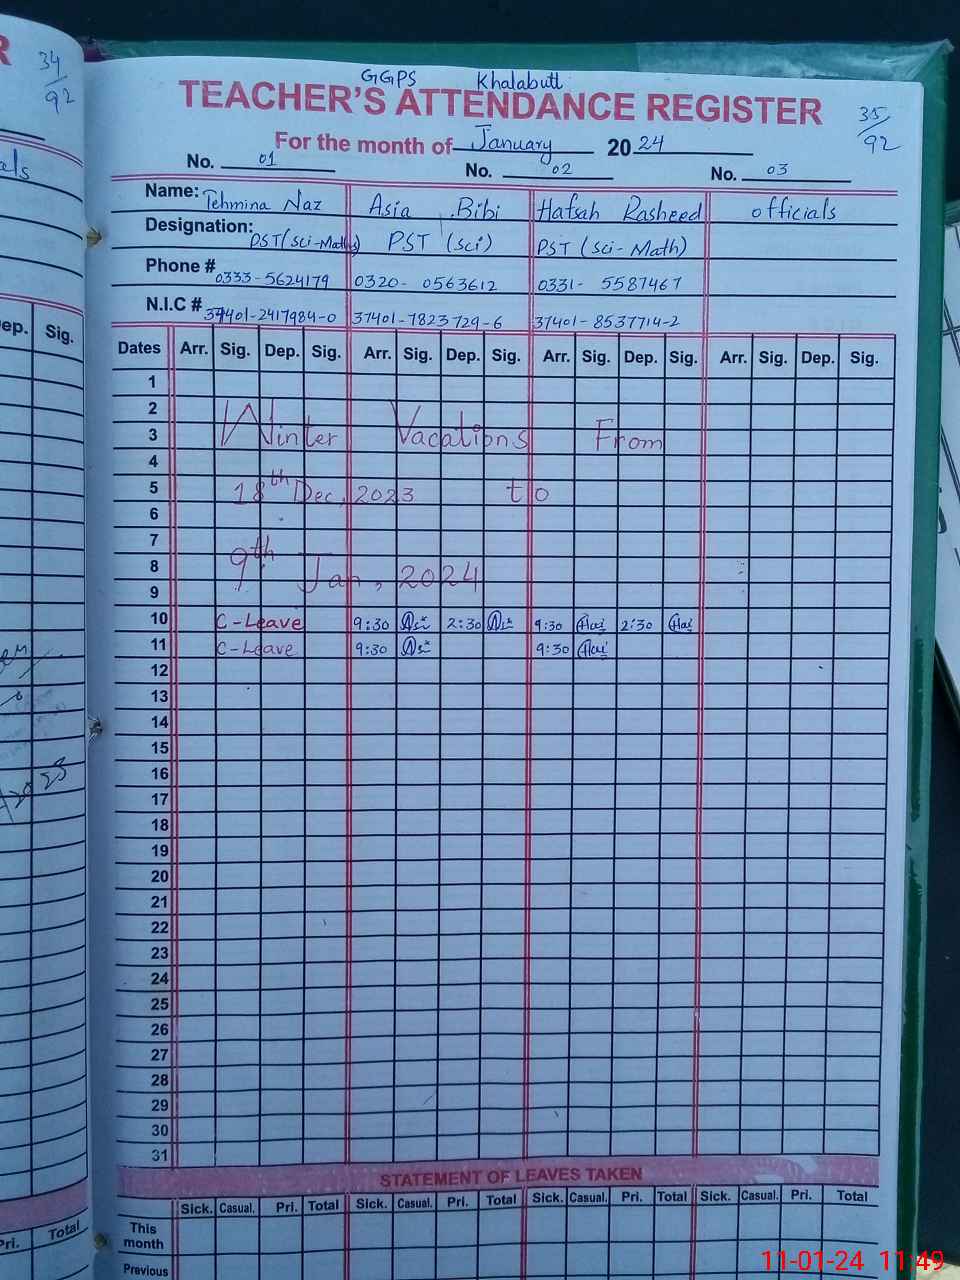 34/92
GGPS Khalabutt
TEACHER'S ATTENDANCE REGISTER
35/92
For the month of January 2024
No. 01 No. 02 No. 03
Name: Tehmina Naz Asia Bibi Hafsah Rasheed officials
Designation: PST (Sci-Maths) PST (Sci) PST (Sci-Math)
Phone # 0333-5624179 0320-0563612 0331-5587467
N.I.C # 37401-2417984-0 37401-7823729-6 37401-8537714-2
Dates Arr. Sig. Dep. Sig. Arr. Sig. Dep. Sig. Arr. Sig. Dep. Sig. Arr. Sig. Dep. Sig.
1
2
3 Winter Vacations From
4
5 18th Dec, 2023 to
6
7
8 9th Jan, 2024
9
10 C-Leave 9:30 2:30 9:30 2:30
11 C-Leave 9:30 9:30
12
13
14
15
16
17
18
19
20
21
22
23
24
25
26
27
28
29
30
31
STATEMENT OF LEAVES TAKEN
Sick. Casual. Pri. Total Sick. Casual. Pri. Total Sick. Casual. Pri. Total Sick. Casual. Pri. Total
This month
Previous
11-01-24 11:49